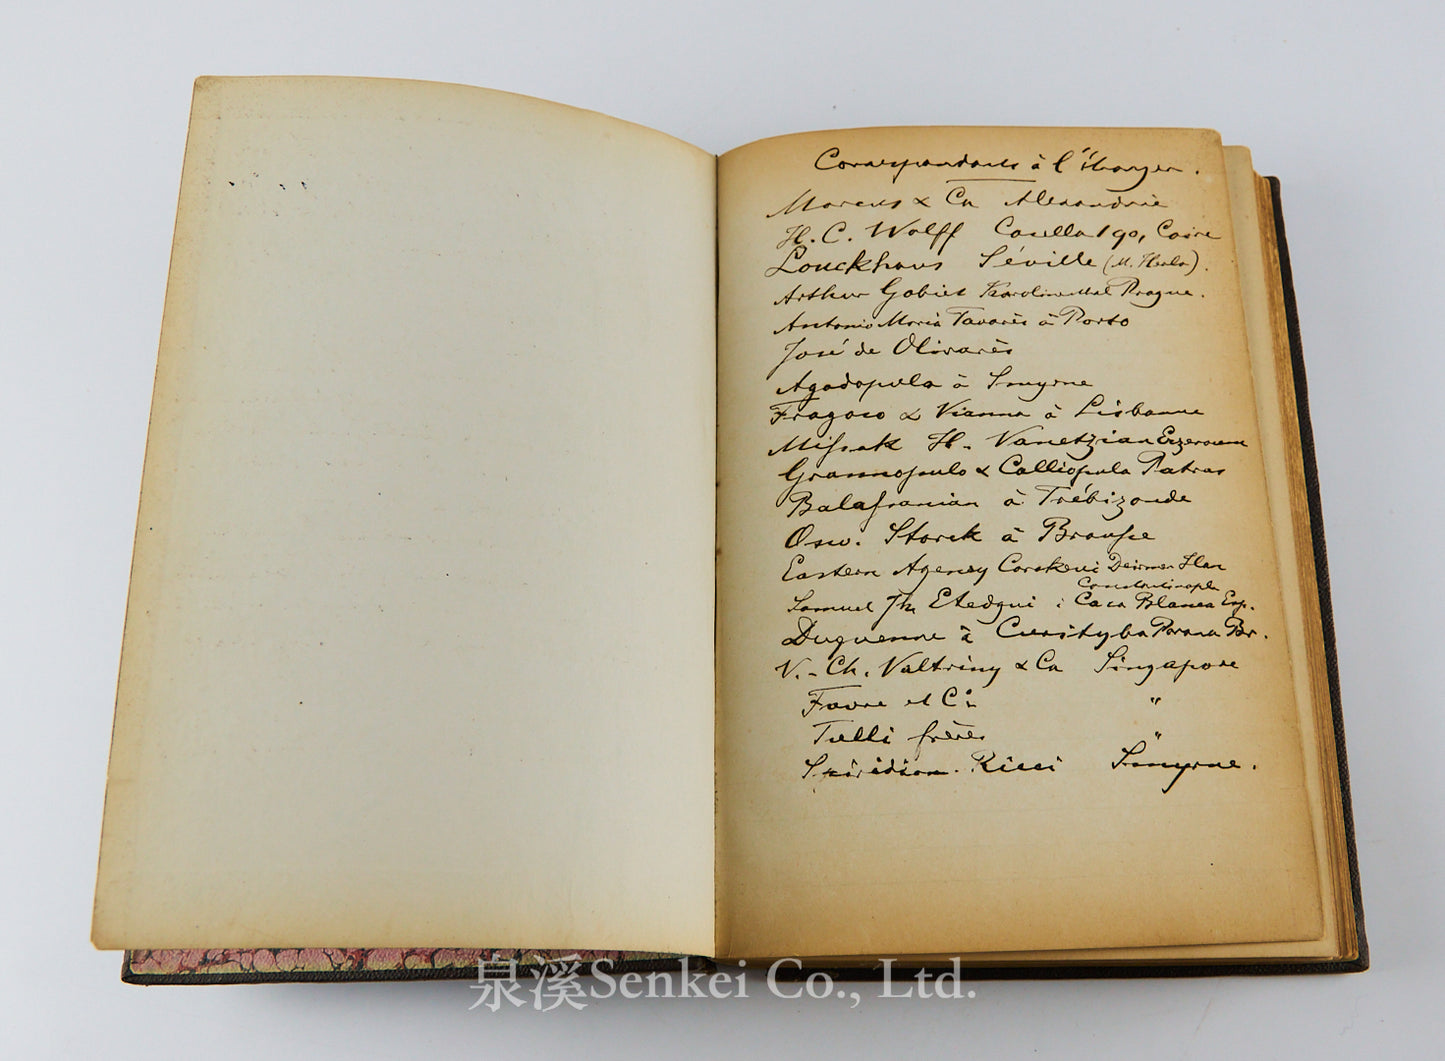 Correspondants à l'étranger.
Marcus & Cn Alexandrie
H. C. Wolff Casella 190, Caire
Louckhaus Séville (M.
Arthur Gobiet Karolinental Prague.
Antonio Maria Tavarès à Porto
José de Olivarès
Agadopula à Smyrne
Fragoso & Vianna à Lisbonne
Missak H. Vanetzian Erzeroum
& Calliopula Patras
à Trébizonde
Osw. Storck à Brousse
Eastern Agency Deirmen Han
Constantinople
Samuel Jh Etedgui : Casa Blanca Esp.
Duquenne à Curityba Parana Br.
V.-Ch. Valtriny & Cn Singapore
Favre et Cie "
Tulli frères "
Spiridion. Ricci Smyrne.
泉溪Senkei Co., Ltd.